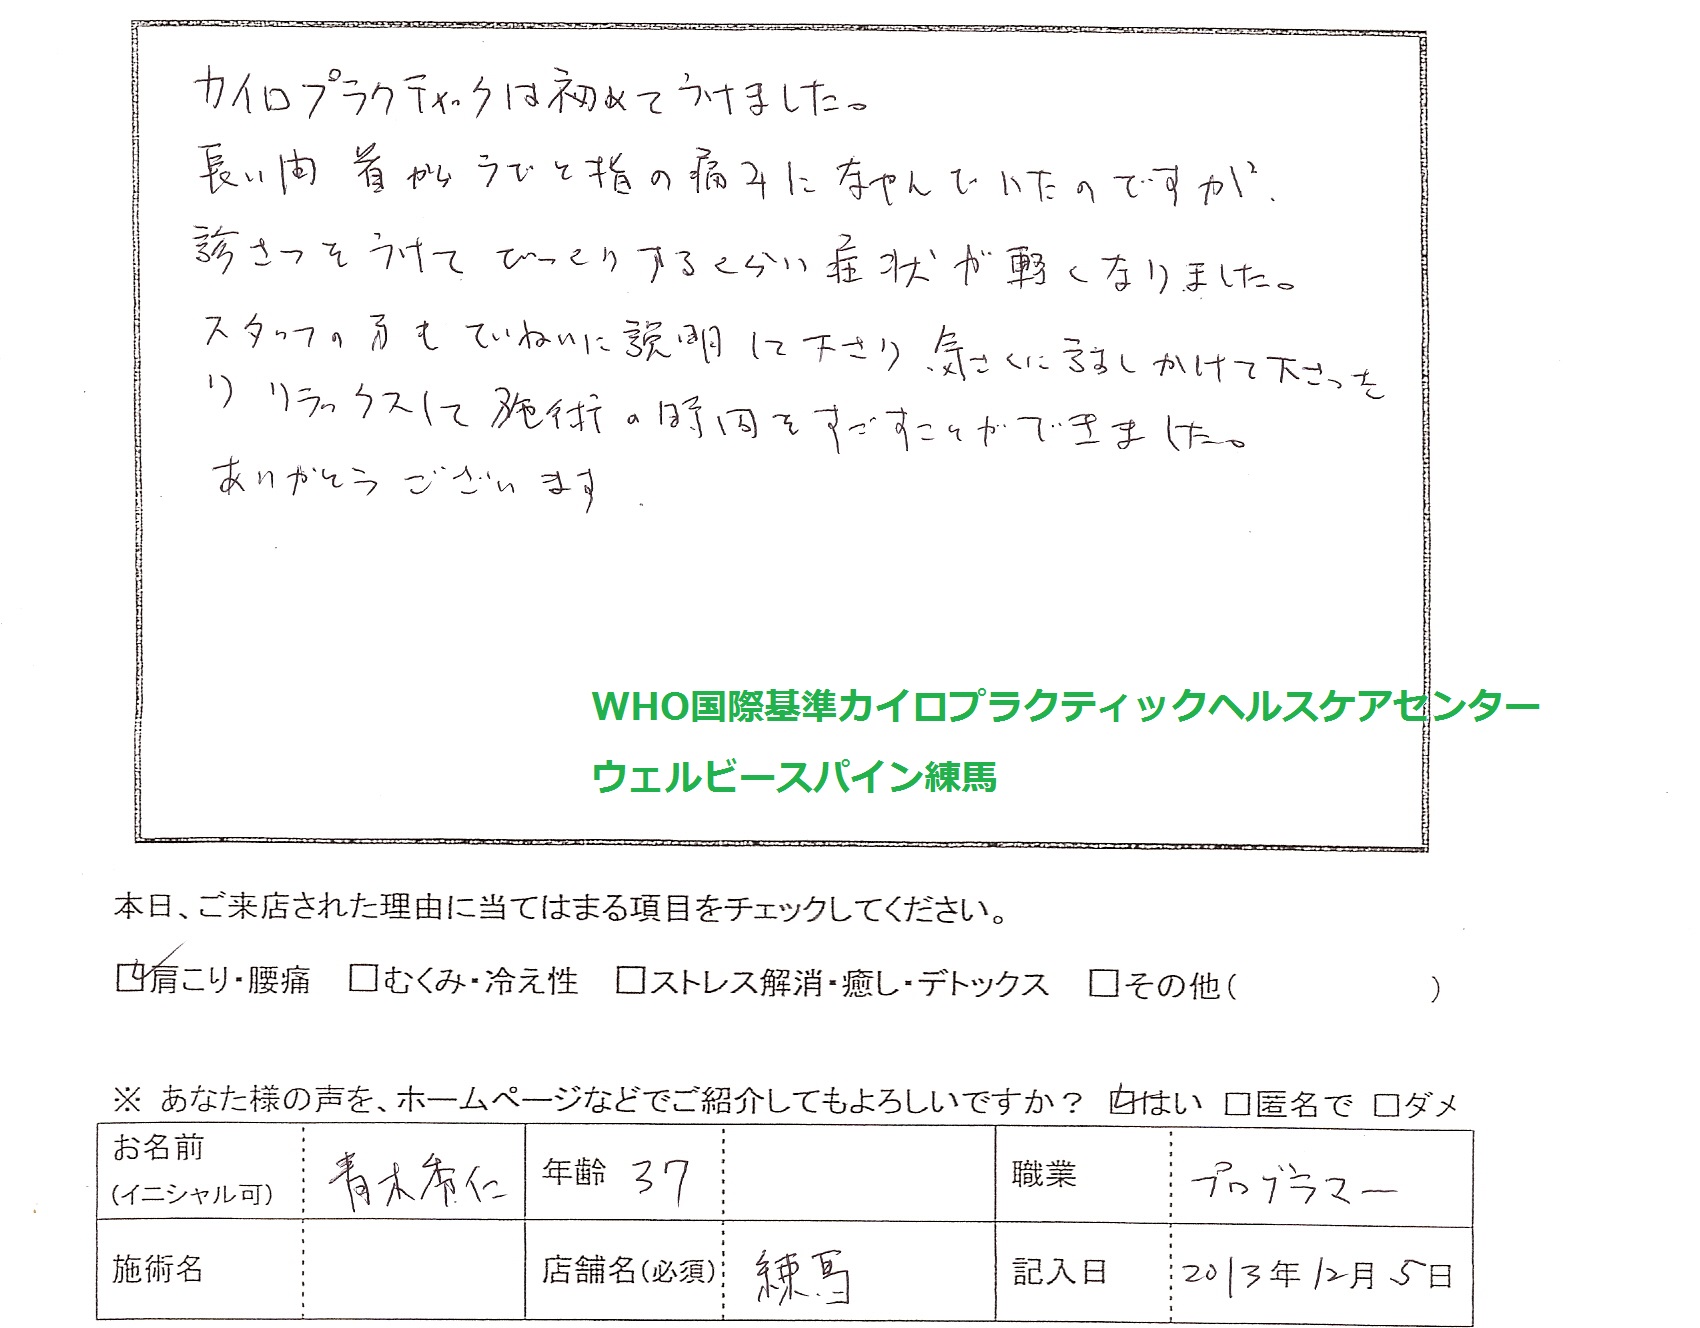 カイロプラクティックは初めてうけました。
長い間 首からうでと指の痛みになやんでいたのですが、
診さつをうけてびっくりするくらい症状が軽くなりました。
スタッフの方もていねいに説明して下さり、気さくに話しかけて下さった
り リラックスして施術の時間をすごすことができました。
ありがとうございます.
WHO国際基準カイロプラクティックヘルスケアセンター
ウェルビースパイン練馬
本日、ご来店された理由に当てはまる項目をチェックしてください。
☑肩こり・腰痛 □むくみ・冷え性 □ストレス解消・癒し・デトックス □その他( )
※ あなた様の声を、ホームページなどでご紹介してもよろしいですか？ ☑はい □匿名で □ダメ
お名前
(イニシャル可) 青木秀仁 年齢 37 職業 プログラマー
施術名 店舗名(必須) 練馬 記入日 2013年12月5日